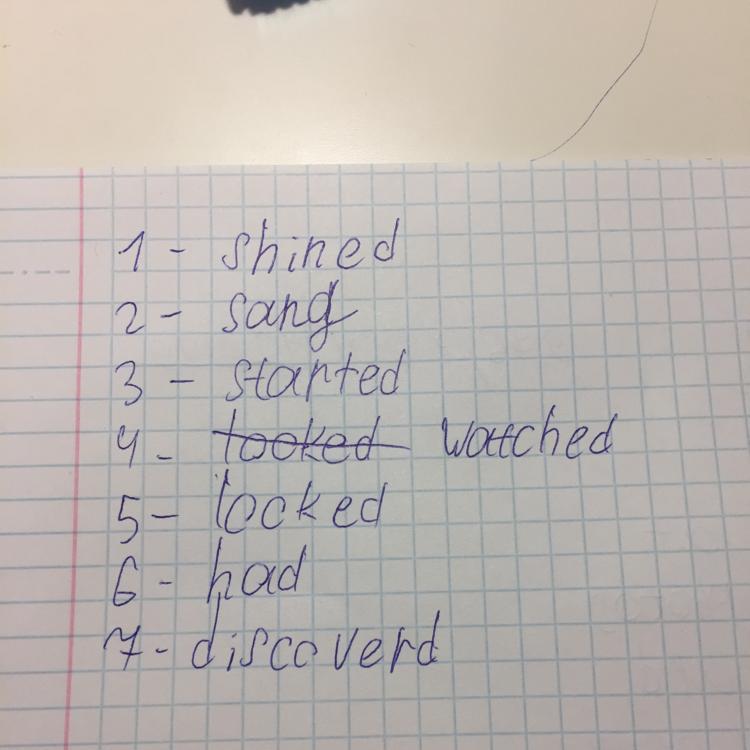 1 - shined
2 - sang
3 - started
4 - locked watched
5 - locked
6 - had
7 - discoverd